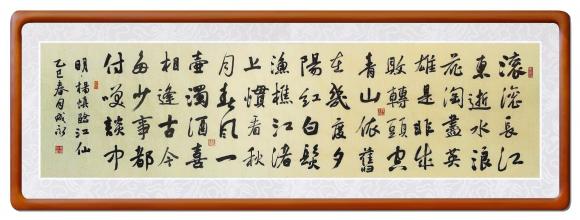 滚滚長江
東逝水浪
花淘盡英
雄是非成
敗轉頭空
青山依舊
在幾度夕
陽紅白髮
漁樵江渚
上慣看秋
月春風一
壺濁酒喜
相逢古今
多少事都
付笑談中
明楊慎臨江仙
乙巳春月